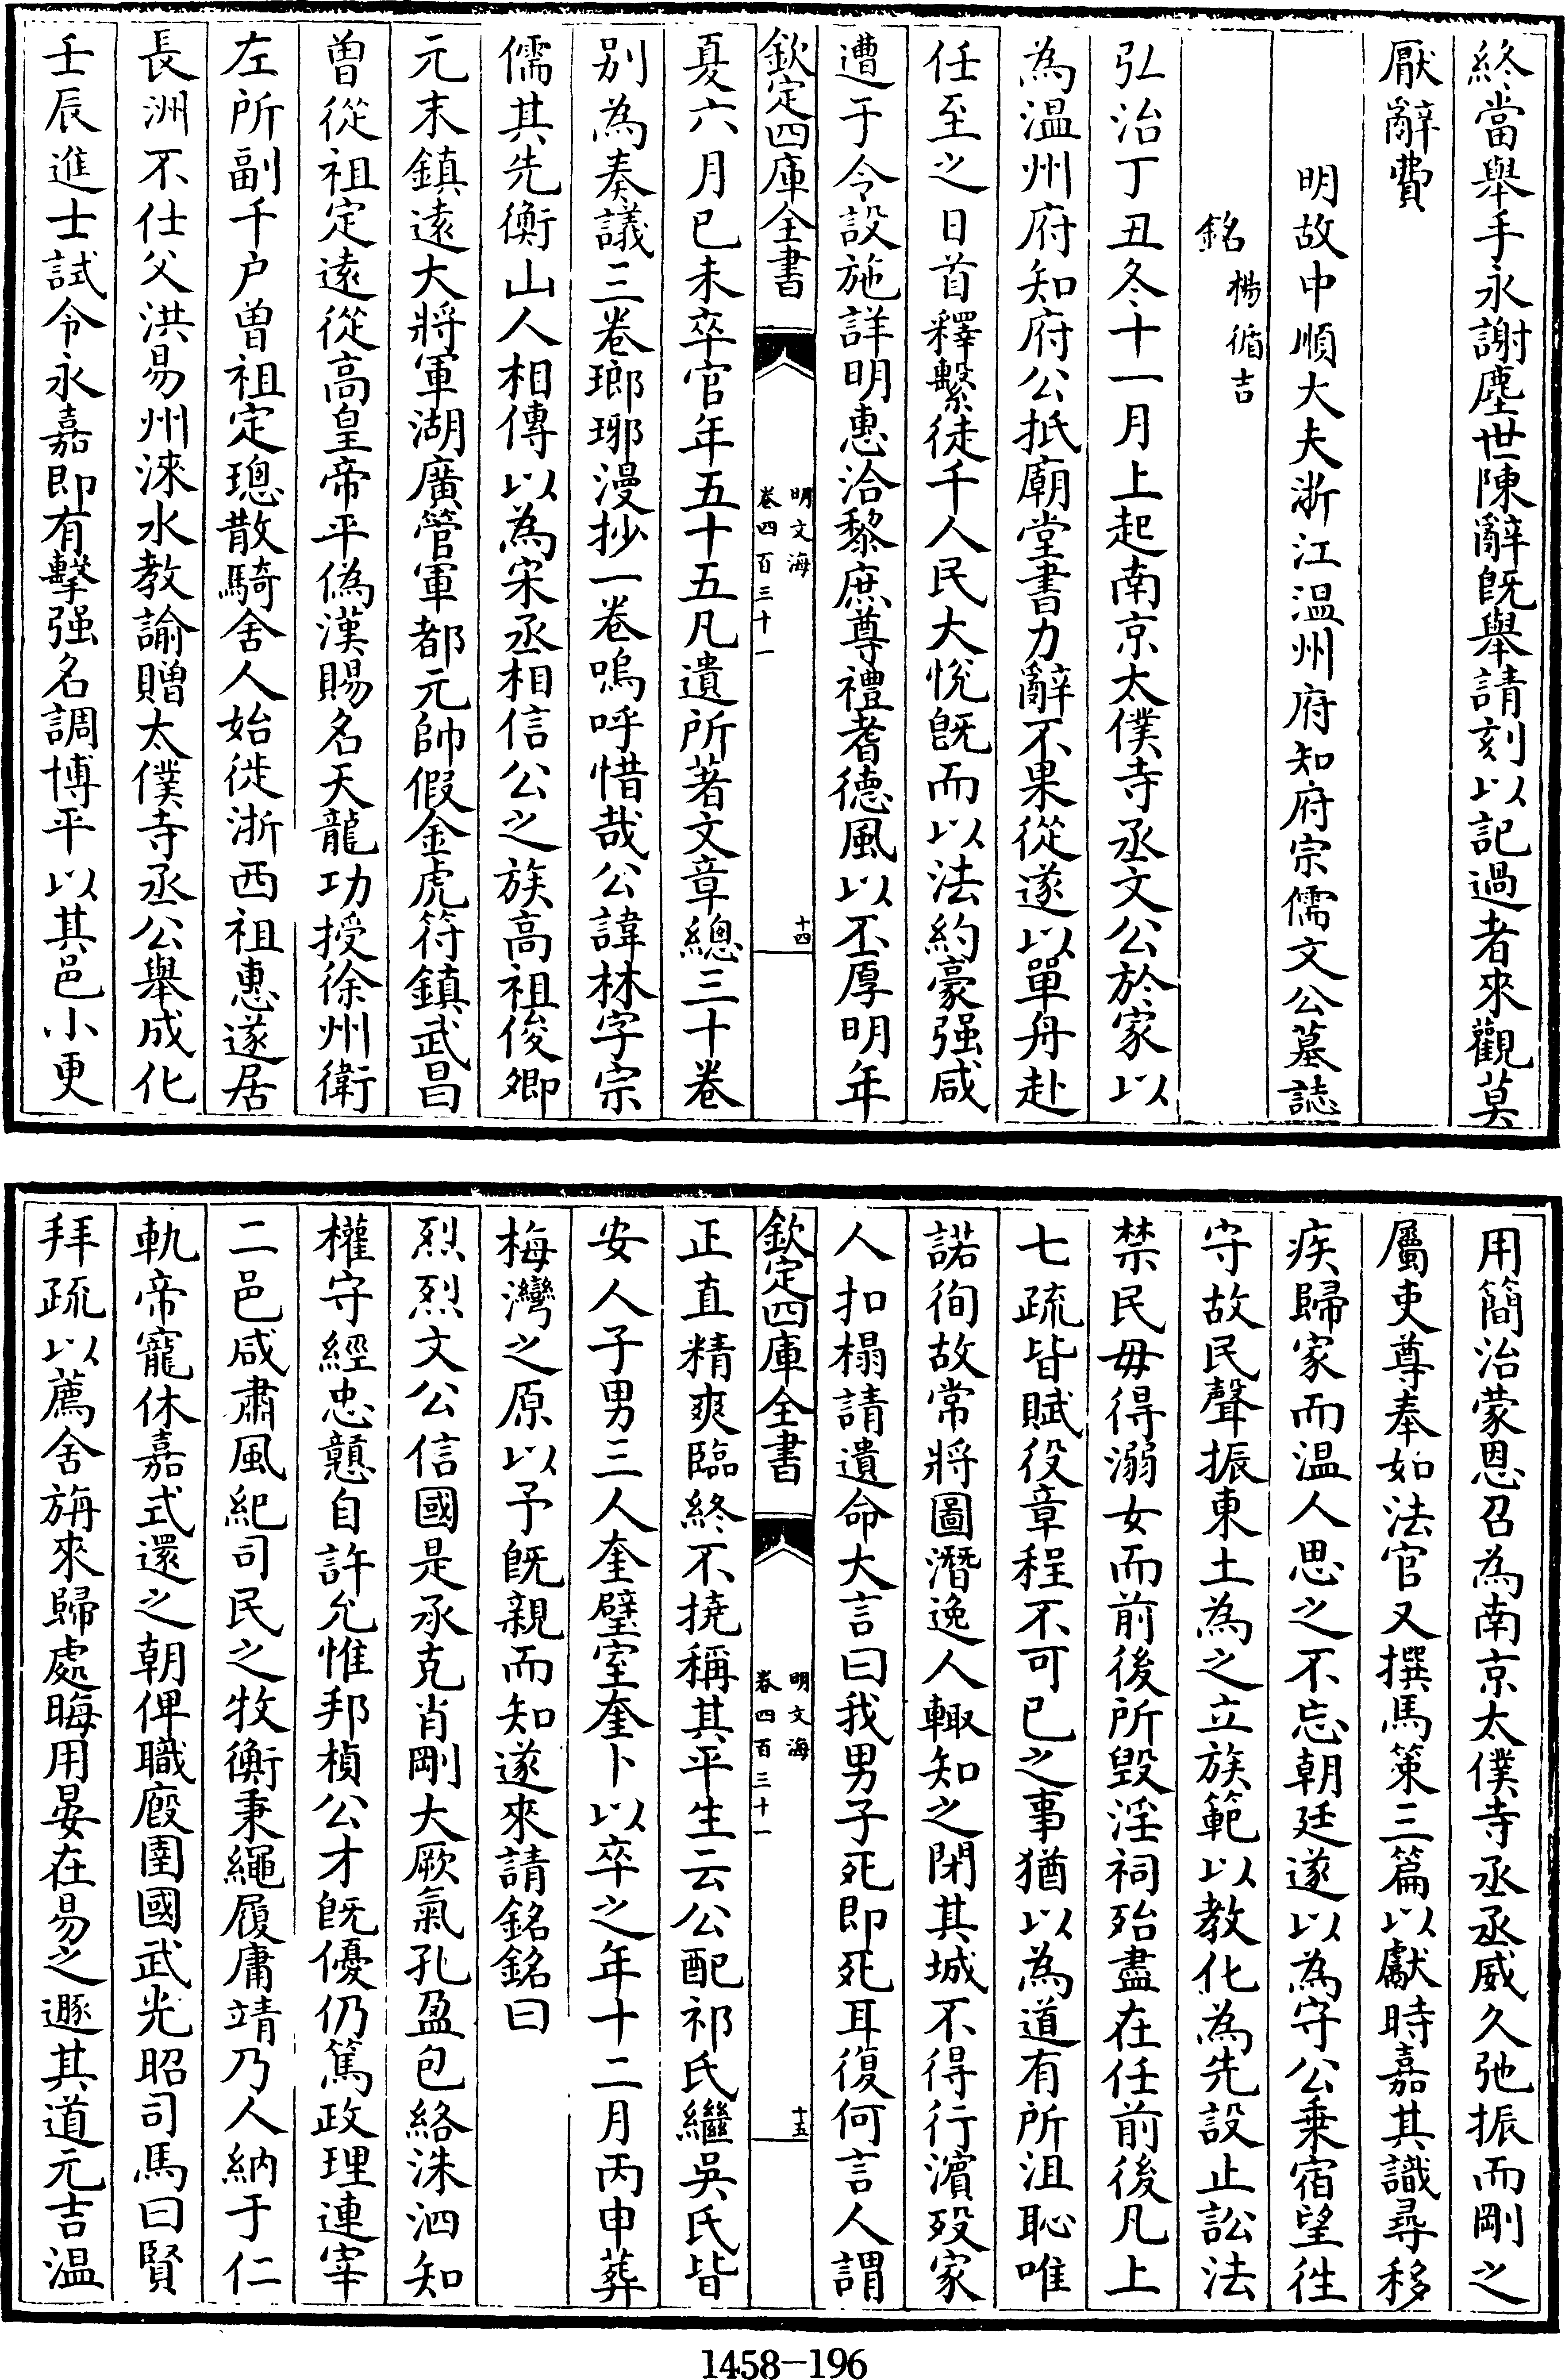 終當舉手永謝塵世陳辭旣舉請刻以記過者來觀莫
厭辭費
明故中順大夫浙江温州府知府宗儒文公墓誌
銘 楊循吉
弘治丁丑冬十一月上起南京太僕寺丞文公於家以
為温州府知府公抵廟堂書力辭不果從遂以單舟赴
任至之日首釋繫徒千人民大悅旣而以法約豪强咸
遭于令設施詳明惠洽黎庶尊禮耆德風以丕厚明年
欽定四庫全書
明文海
卷四百三十一
十四
夏六月已未卒官年五十五凡遺所著文章總三十卷
别為奏議三卷瑯琊漫抄一卷嗚呼惜哉公諱林字宗
儒其先衡山人相傳以為宋丞相信公之族高祖俊卿
元末鎮遠大將軍湖廣管軍都元帥假金虎符鎮武昌
曾從祖定遠從高皇帝平偽漢賜名天龍功授徐州衛
左所副千户曾祖定璁散騎舍人始徙浙西祖惠遂居
長洲不仕父洪易州淶水教諭贈太僕寺丞公舉成化
壬辰進士試令永嘉即有擊强名調博平以其邑小更
用簡治蒙恩召為南京太僕寺丞丞威久弛振而剛之
屬吏尊奉如法官又撰馬策三篇以獻時嘉其識尋移
疾歸家而温人思之不忘朝廷遂以為守公乗宿望徃
守故民聲振東土為之立族範以教化為先設止訟法
禁民毋得溺女而前後所毀淫祠殆盡在任前後凡上
七疏皆賦役章程不可已之事猶以為道有所沮恥唯
諾徇故常將圖潛逸人輙知之閉其城不得行濵歿家
人扣榻請遺命大言曰我男子死即死耳復何言人謂
欽定四庫全書
明文海
卷四百三十一
十五
正直精爽臨終不撓稱其平生云公配祁氏繼吳氏皆
安人子男三人奎璧室奎卜以卒之年十二月丙申葬
梅灣之原以予旣親而知遂來請銘銘曰
烈烈文公信國是承克肖剛大厥氣孔盈包絡洙泗知
權守經忠戇自許允惟邦楨公才旣優仍篤政理連宰
二邑咸肅風紀司民之牧衡秉繩履庸靖乃人納于仁
軌帝寵休嘉式還之朝俾職廏圉國武光昭司馬曰賢
拜疏以薦舍旃來歸處晦用晏在易之遯其道元吉温
1458-196